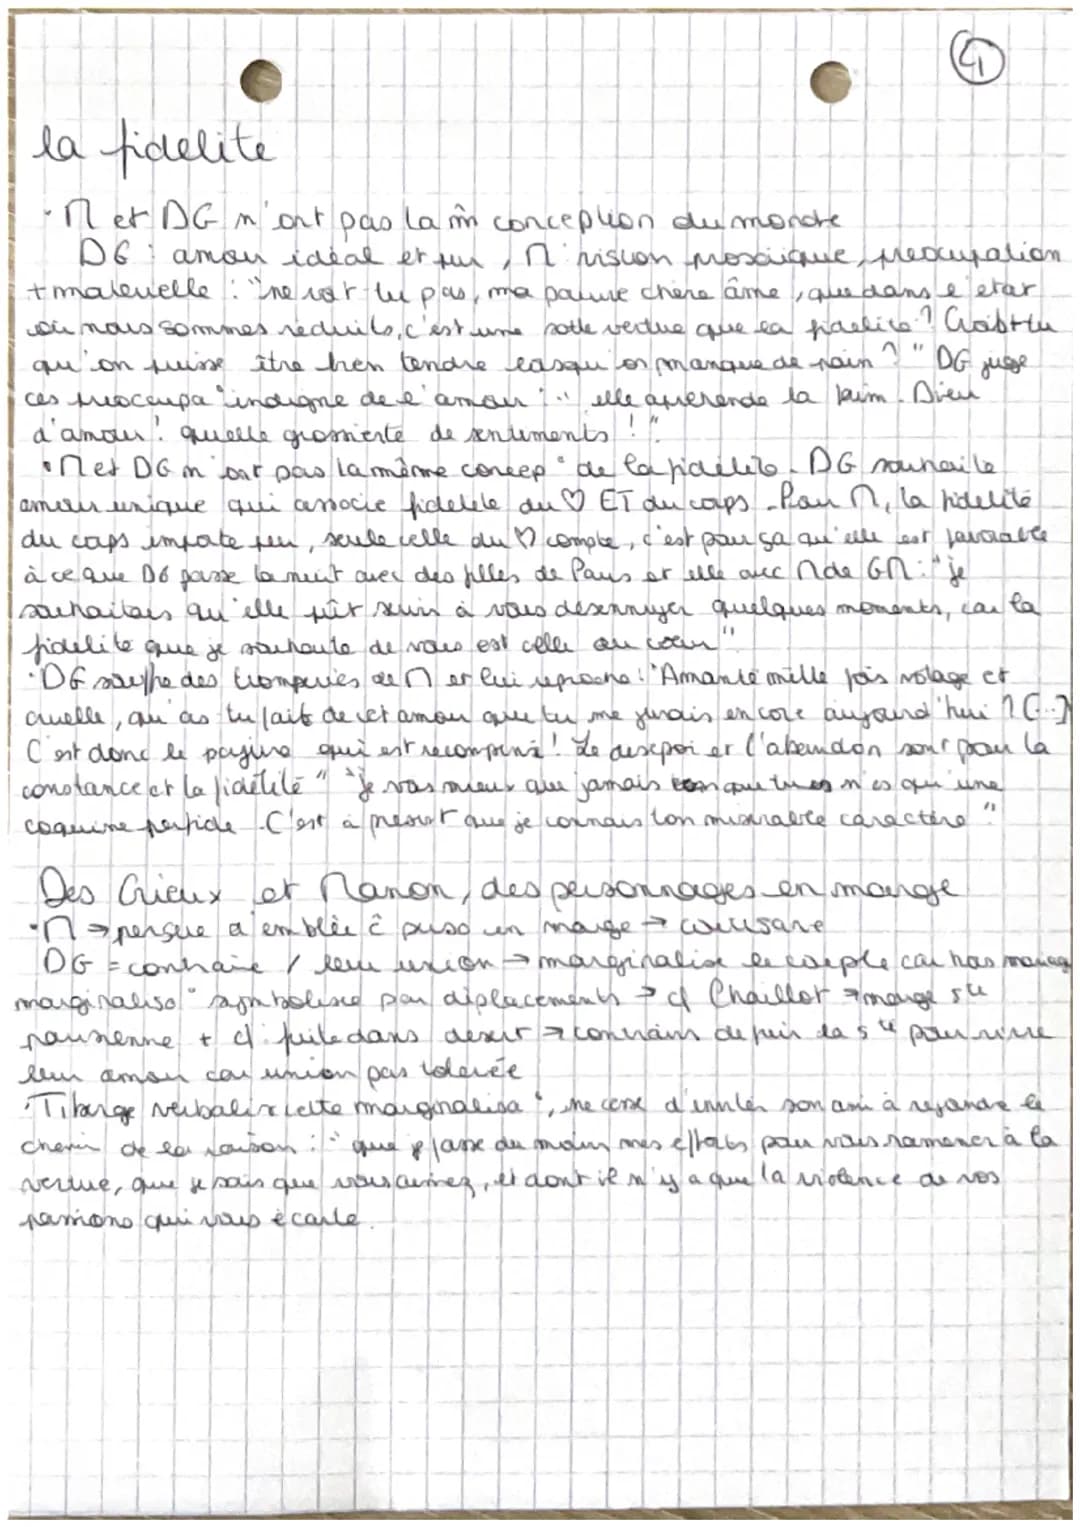 4
la fidelite
· M et DG n'ont pas la m̂ conception du monde
DG : amour idéal et pur, M vision prosaïque, préocupation
+ materielle : "ne vois tu pas, ma pauvre chère âme, que dans l'état
où nous sommes réduits, c'est une sotte vertue que la fidelité ? Crois tu
qu'on puisse être bien tendre lorsqu'on manque de pain ?" DG juge
ces préoccupa° indigne de l'amour : "elle apprehende la faim. Dieu
d'amour ! quelle grossierté de sentiments !".
· M et DG n'ont pas la même concep° de la fidélité. DG souhaite
amour unique qui associe fidelité du ♡ ET du corps. Pour M, la fidelité
du corps importe peu, seule celle du ♡ compte, c'est pour ça qu'elle est favorable
à ce que DG passe la nuit avec des filles de Paris et elle avec M de GM : "je
souhaitais qu'elle pût servir à vous désennuyer quelques moments, car la
fidelité que je souhaite de vous est celle du cœur".
· DG souffre des tromperies de M et lui reproche : "Amante mille fois volage et
cruelle, qu'as tu fait de cet amour que tu me jurais encore aujourd'hui ? (...)
C'est donc le parjure qui est recompensé ! Le desespoir et l'abandon sont pour la
constance et la fidélité" "je vois mieux que jamais que tu n'es qu'une
coquine perfide. C'est à présent que je connais ton misérable caractère".
Des Grieux et Manon, des personnages en marge
· M → perçue d'emblée ĉ perso en marge → courtisane
DG = contraire / leur union → marginalise le couple car hors mariage
marginalisa° symbolisée par déplacements → cf Chaillot → marge sté
parisienne + cf. fuite dans desert → contraints de fuir la sté pour vivre
leur amour car union pas tolerée
· Tiberge verbalise cette marginalisa°, ne cesse d'inviter son ami à rejoindre le
chemin de la raison : "que je fasse du moins mes efforts pour vous ramener à la
vertue, que je sais que vous aimez, et dont il n'y a que la violence de vos
passions qui vous écarte.